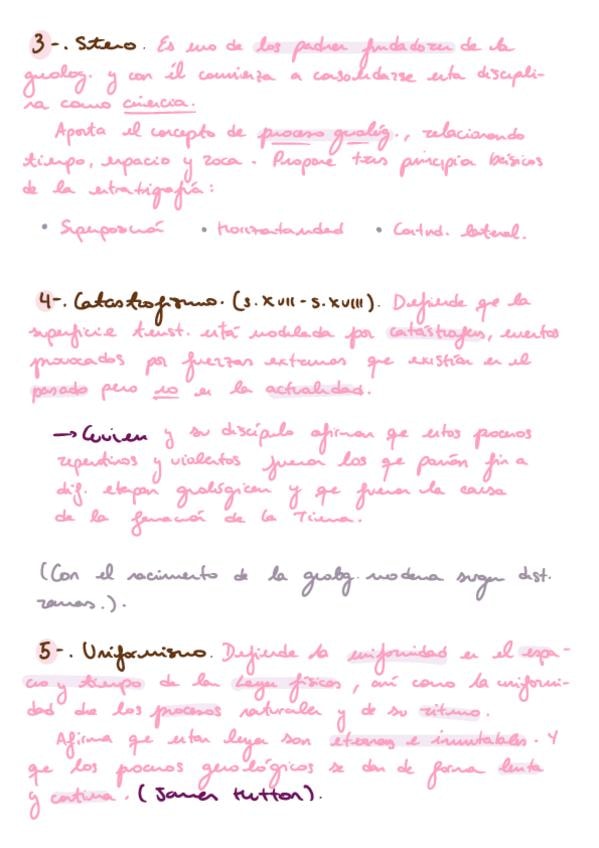 3-. Steno. Es uno de los padres fundadores de la
geolog. y con él comienza a consolidarse esta discipli-
na como ciencia.
Aporta el concepto de proceso geológ., relacionando
tiempo, espacio y roca. Propone tres principios básicos
de la estratigrafía:
• Superposición • Horizontalidad • Contind. lateral.
4-. Catastrofismo. (s. XVII - s. XVIII). Defiende que la
superficie terrest. está modelada por catástrofes, eventos
provocados por fuerzas extremas que existían en el
pasado pero no en la actualidad.
→ Cuvier y su discípulo afirman que estos procesos
repentinos y violentos fueron los que ponían fin a
dif. etapas geológicas y que fueron la causa
de la formación de la Tierra.
(Con el nacimiento de la geolog. moderna surgen dist.
ramas.).
5-. Uniformismo. Defiende la uniformidad en el espa-
cio y tiempo de las leyes físicas, así como la uniformi-
dad de los procesos naturales y de su ritmo.
Afirma que estas leyes son eternas e inmutables. Y
que los procesos geológicos se dan de forma lenta
y continua. (James Hutton).